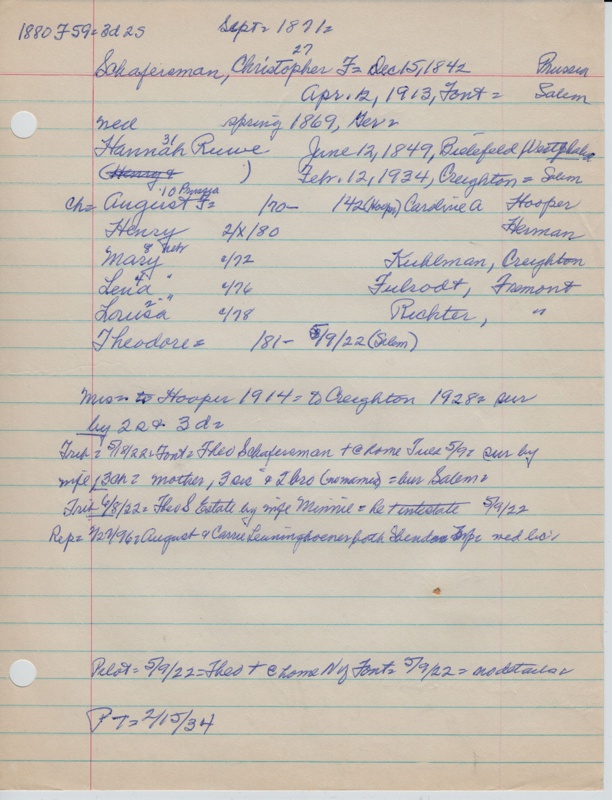 1880 F59= 3d 2s Sept= 1871=
27
Schafersman, Christopher F= Dec 15, 1842 Prussia
Apr. 12, 1913, Font = Salem
wed spring 1869, Ger=
31
Hannah Ruwe June 12, 1849, Bielefeld, Westphalia
(Henry & ) Feb. 12, 1934, Creighton = Salem
10 Prussia
ch= August F= /70- 142 (Hooper) Caroline A Hooper
Henry 2/x/80 Herman
8 Nebr
Mary c/72 Kuhlman, Creighton
4 "
Lena c/76 Fulrodt, Fremont
2 "
Louisa c/78 Richter, "
Theodore= /81- 5/9/22 (Salem)
Mrs= to Hooper 1914= to Creighton 1928= sur
by 2s & 3d=
Trib= 5/18/22= Font= Theo Schafersman + @ home Tues 5/9= sur by
wife, 3ch= mother, 3 sis & 2 bro (no names) = bur Salem=
Trib 6/8/22= Theo S Estate by wife Minnie = he + intestate 5/9/22
Rep= 2/27/96= August & Carrie Leuninghoener both = wed lic's
Pilot= 5/9/22= Theo + @ home N of Font= 5/9/22 = no details
PT= 2/15/34